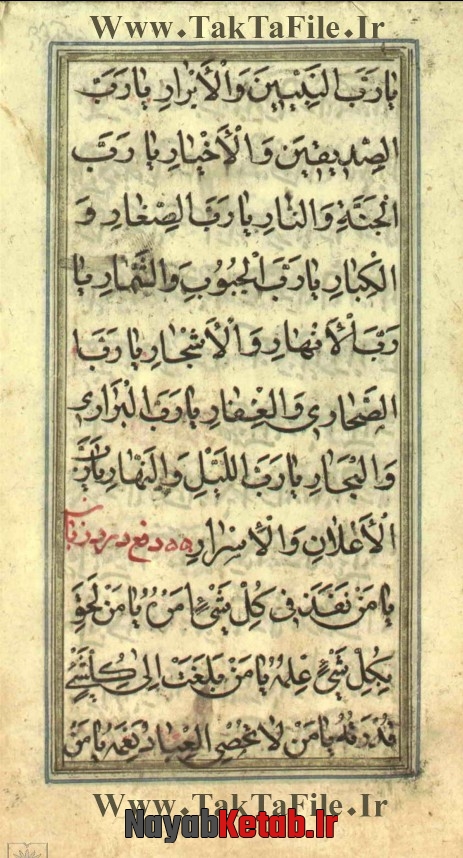 Www.TakTaFile.Ir
یا رَبَّ النَّبِیّینَ وَالْأَبْرارِ یا رَبَّ
الصِّدّیقینَ وَالْأَخْیارِ یا رَبَّ
الْجَنَّةِ وَالنّارِ یا رَبَّ الصِّغارِ وَ
الْکِبارِ یا رَبَّ الْحُبُوبِ وَالثِّمارِ یا
رَبَّ الْأَنْهارِ وَالْأَشْجارِ یا رَبَّ
الصَّحاری وَالْقِفارِ یا رَبَّ الْبَراری
وَالْبِحارِ یا رَبَّ اللَّیْلِ وَالنَّهارِ یا رَبَّ
الْأَعْلانِ وَالْأَسْرارِ ۵۵ دفع درد زبان
یا مَنْ نَفَذَ فی کُلِّ شَیْءٍ اَمْرُهُ یا مَنْ لَحِقَ
بِکُلِّ شَیْءٍ عِلْمُهُ یا مَنْ بَلَغَتْ اِلی کُلِّ شَیْءٍ
قُدْرَتُهُ یا مَنْ لا تُحْصِی الْعِبادُ نِعَمَهُ یا مَنْ
Www.TakTaFile.Ir
NayabKetab.Ir